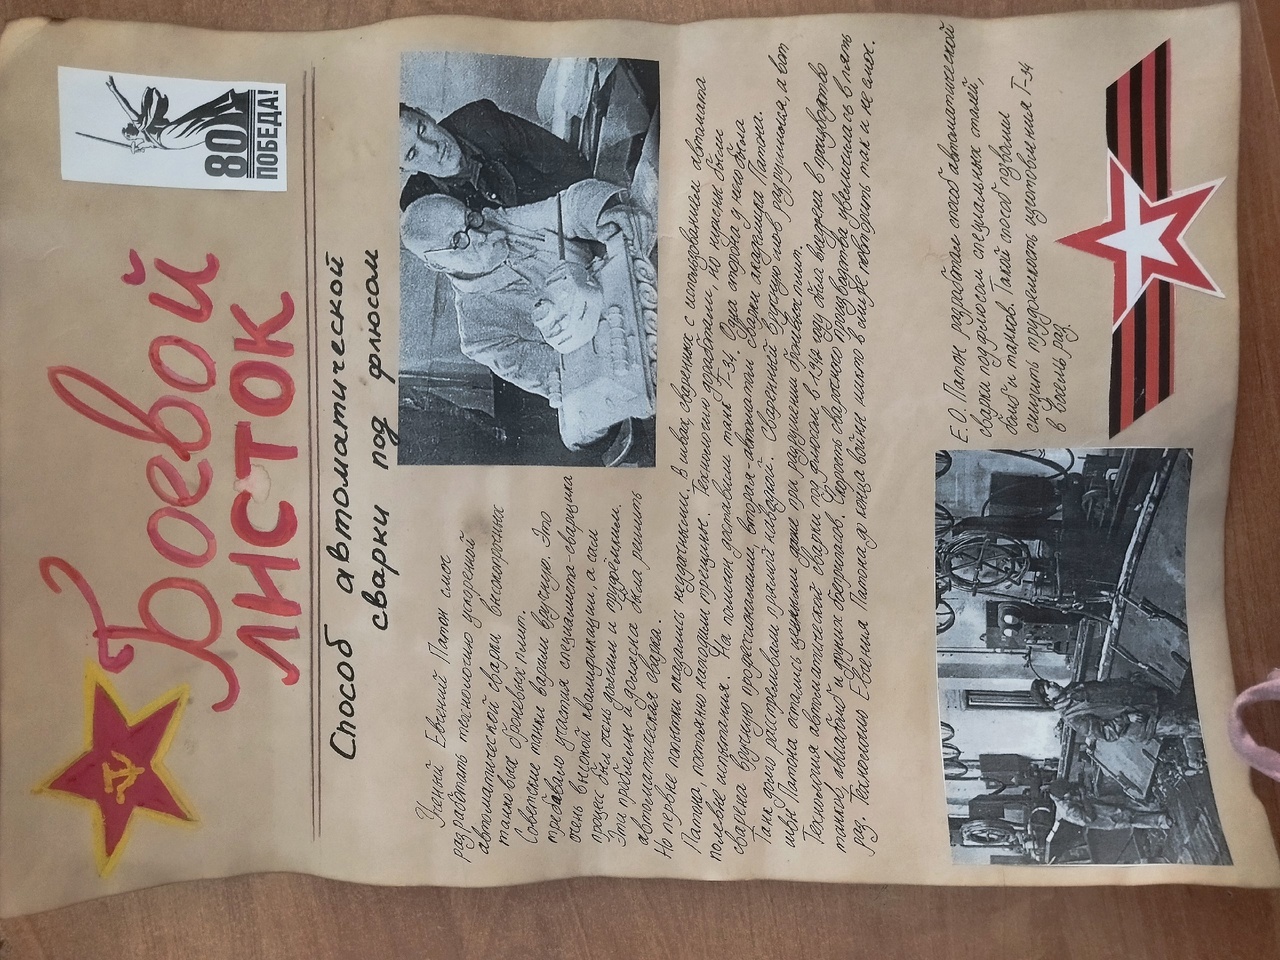 Боевой
листок
80
ПОБЕДА!
Способ автоматической
сварки под флюсом
Ученый Евгений Патон смог
разработать технологию ускоренной
автоматической сварки высокопрочных
танковых броневых плит.
Советские танки варили вручную. Это
требовало участия специалиста-сварщика
очень высокой квалификации, а сам
процесс был очень долгим и трудоёмким.
Эти проблемы и должна была решить
автоматическая сварка.
Но первые попытки оказались неудачными. В швах, сваренных с использованием автомата
Патона, постоянно находили трещины. Технологию доработали, но нужны были
полевые испытания. На полигон доставили танк Т-34. Одна сторона у него была
сварена вручную профессионалами, вторая - автоматом сварки академика Патона.
Танк долго расстреливали прямой наводкой. Сваренный вручную шов разрушился, а вот
швы Патона остались целыми даже при разрушении броневых плит.
Технология автоматической сварки под флюсом в 1942 году была внедрена в производство
танков, авиабомб и других боеприпасов. Скорость сварочного производства увеличилась в пять
раз. Технологию Евгения Патона до конца войны никто в мире повторить так и не смог.
Е.О. Патон разработал способ автоматической
сварки под флюсом специальных сталей,
бомб и танков. Такой способ позволил
снизить трудоемкость изготовления Т-34
в восемь раз.